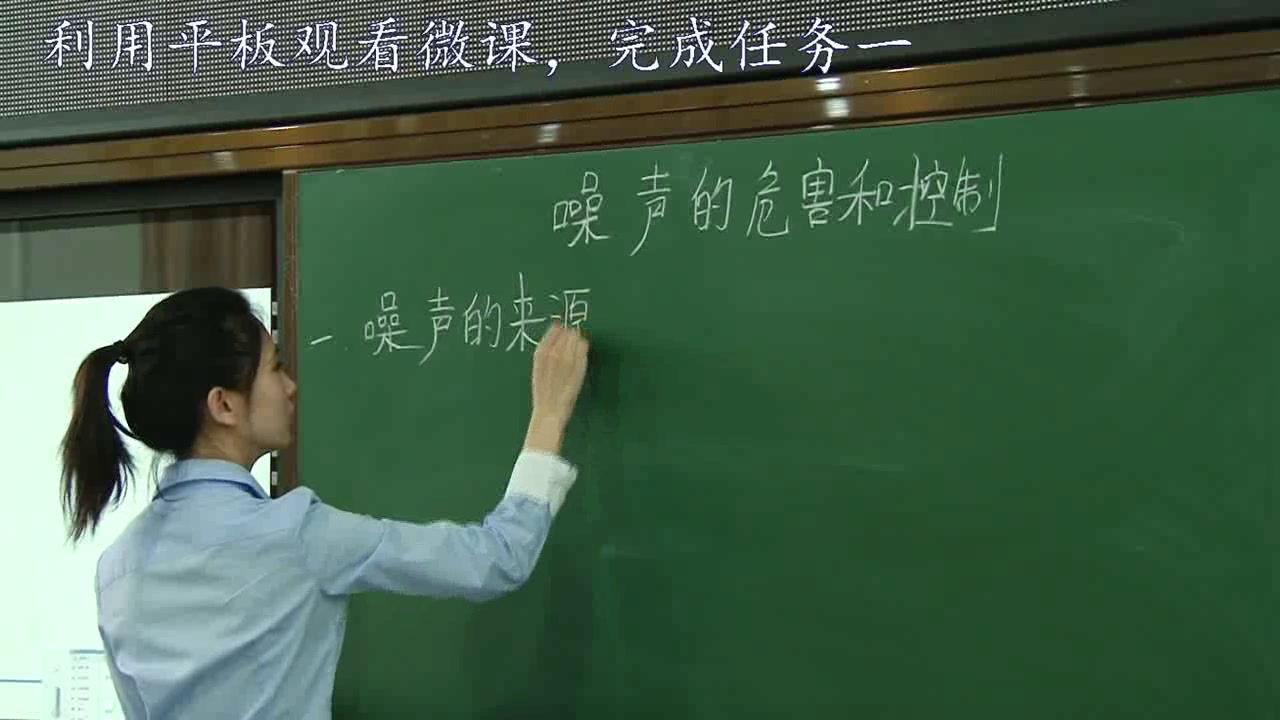 利用平板观看微课，完成任务一
噪声的危害和控制
一.噪声的来源